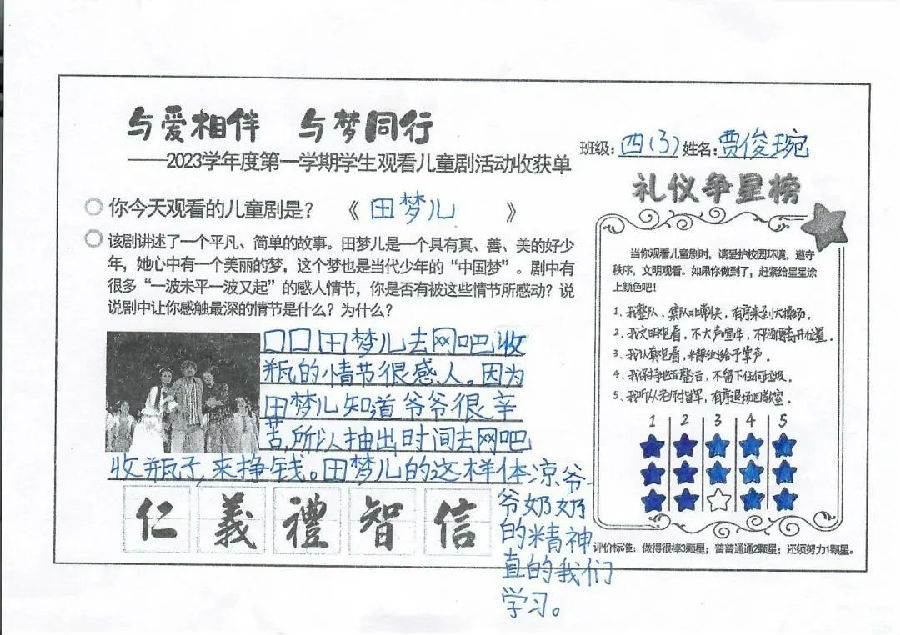 与爱相伴 与梦同行
——2023学年度第一学期学生观看儿童剧活动收获单
班级：四（3）姓名：贾俊琬
你今天观看的儿童剧是？《田梦儿》
该剧讲述了一个平凡、简单的故事。田梦儿是一个具有真、善、美的好少
年，她心中有一个美丽的梦，这个梦也是当代少年的“中国梦”。剧中有
很多“一波未平一波又起”的感人情节，你是否有被这些情节所感动？说
说剧中让你感触最深的情节是什么？为什么？
口口田梦儿去网吧收
瓶的情节很感人。因为
田梦儿知道爷爷很辛
苦，所以抽出时间去网吧
收瓶子，来挣钱。田梦儿的这样体凉爷
爷奶奶
的精神
真的我们
学习。
仁 義 禮 智 信
礼仪争星榜
当你观看儿童剧时，请爱护校园环境，遵守
秩序，文明观看。如果你做到了，赶紧给星星涂
上颜色吧！
1、我整队、集队
2、我文明观看，不大声喧哗，
3、我认真观看，给予掌声。
4、我保持地面整洁，不留下任何垃圾。
5、我听从老师指挥，有序退场回教室。
1 2 3 4 5
评价标准：做得很棒3颗星；普普通通2颗星；还须努力1颗星。